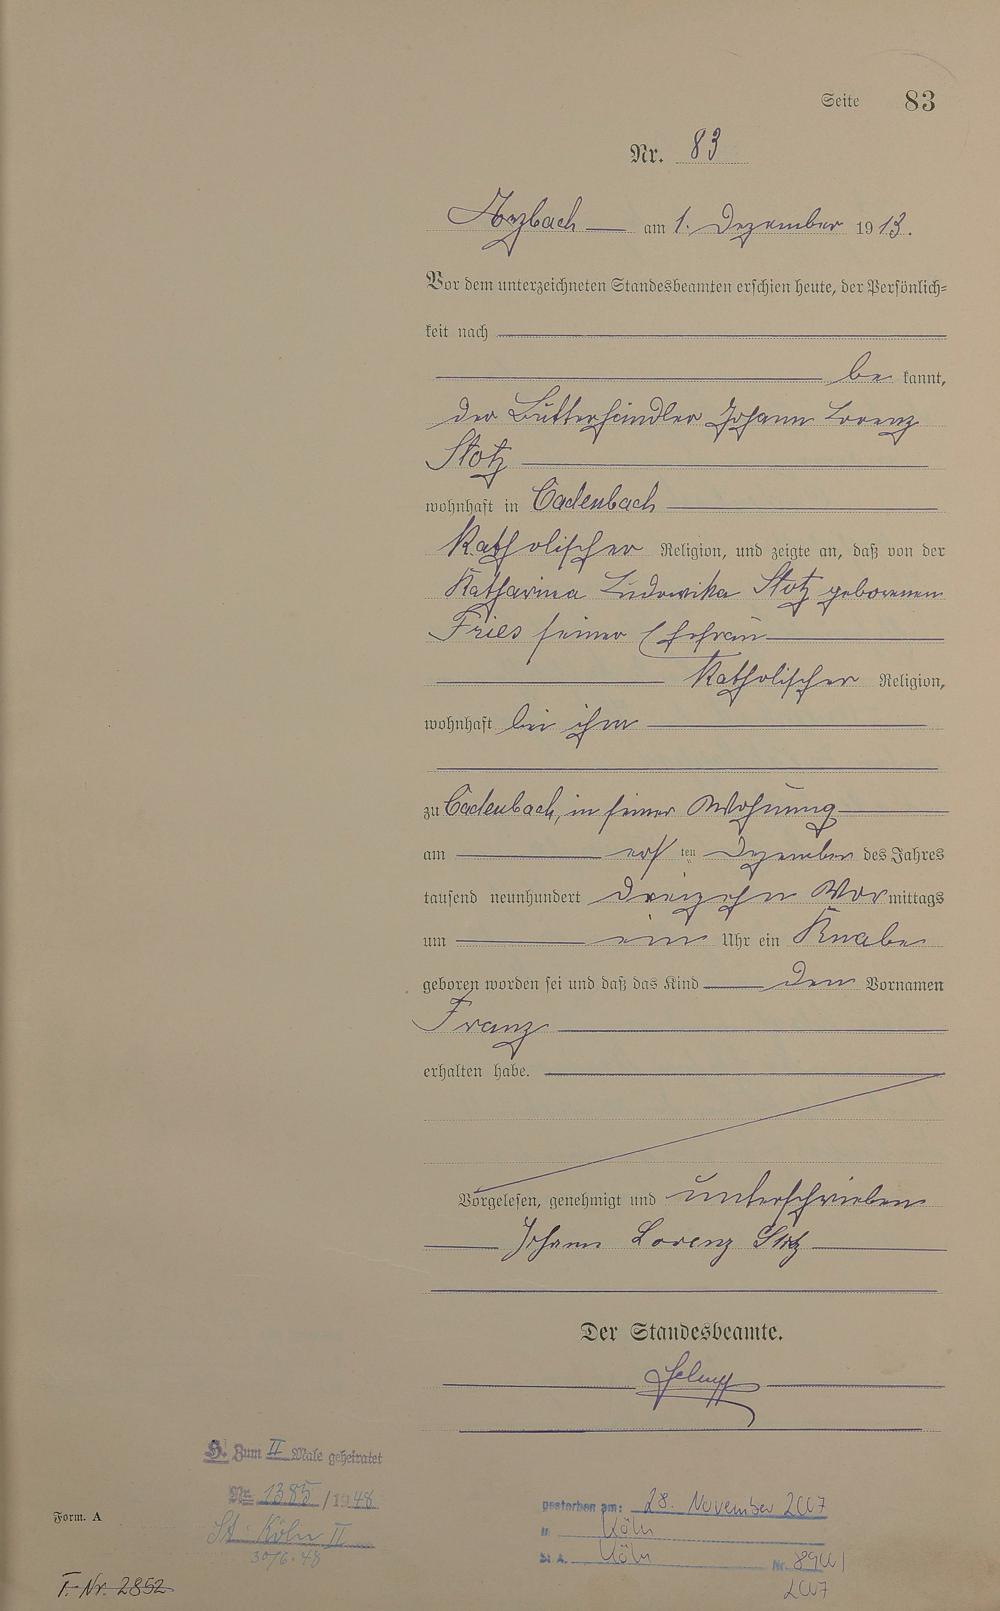 Seite 83
Nr. 83
Arzbach am 1. Dezember 1913.
Vor dem unterzeichneten Standesbeamten erschien heute, der Persönlich-
keit nach
be kannt,
der Butterhändler Johann Lorenz
Stotz
wohnhaft in Cadenbach
Katholischer Religion, und zeigte an, daß von der
Katharina Ludowika Stotz geborenen
Fries seiner Ehefrau
Katholischer Religion,
wohnhaft bei ihm
zu Cadenbach, in seiner Wohnung
am ersten Dezember des Jahres
tausend neunhundert dreizehn Vormittags
um ein Uhr ein Knabe
geboren worden sei und daß das Kind den Vornamen
Franz
erhalten habe.
Vorgelesen, genehmigt und unterschrieben
Johann Lorenz Stotz
Der Standesbeamte.
H. Zum II Male geheiratet
Nr. 1385/1948
St. Köln II
30/6.48
gestorben am: 28. November 2007
in Köln
St. A. Köln Nr. 8941
2007
Form. A
T. Nr. 2852